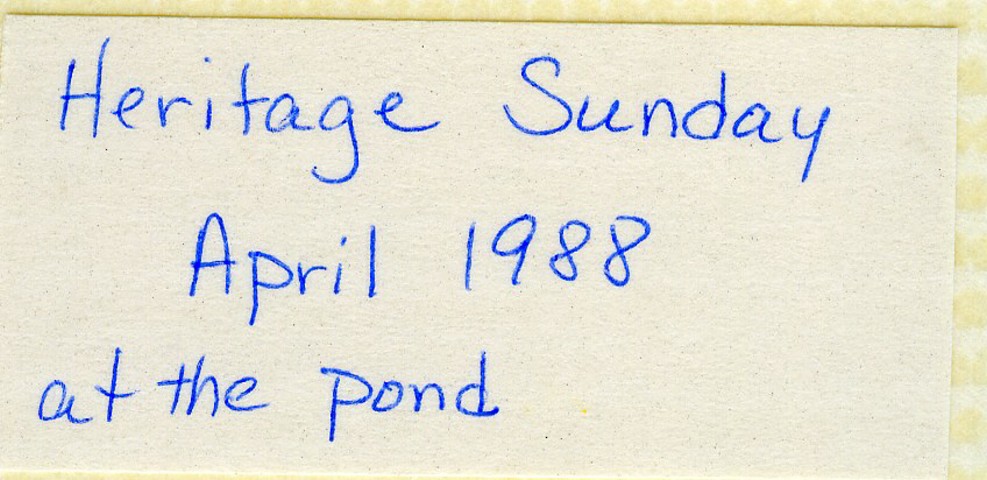 Heritage Sunday
April 1988
at the pond